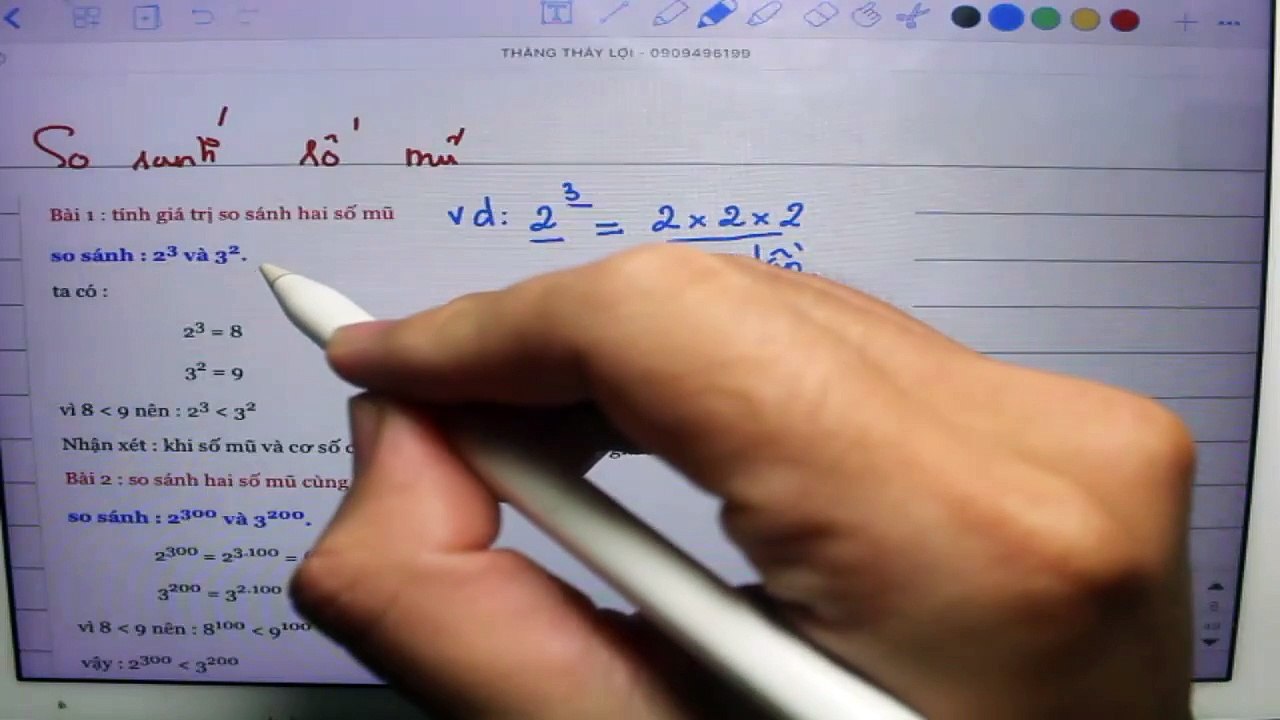 THẮNG THẦY LỢI - 0909496199
So sánh số mũ
Bài 1 : tính giá trị so sánh hai số mũ
vd: 2³ = 2 x 2 x 2
lần
so sánh : 2³ và 3².
ta có :
2³ = 8
3² = 9
vì 8 < 9 nên : 2³ < 3²
Nhận xét : khi số mũ và cơ số
Bài 2 : so sánh hai số mũ cùng
so sánh : 2³⁰⁰ và 3²⁰⁰.
2³⁰⁰ = 2³·¹⁰⁰ =
3²⁰⁰ = 3²·¹⁰⁰
vì 8 < 9 nên : 8¹⁰⁰ < 9¹⁰⁰
vậy : 2³⁰⁰ < 3²⁰⁰